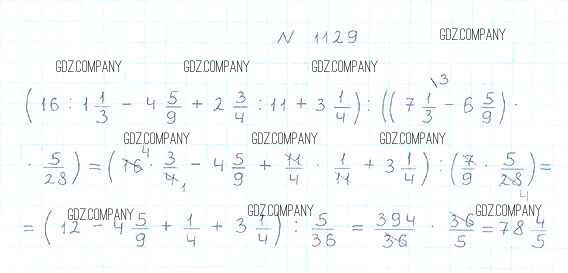 N 1129
GDZ.COMPANY
GDZ.COMPANY GDZ.COMPANY GDZ.COMPANY
(16 : 1 1/3 - 4 5/9 + 2 3/4 : 11 + 3 1/4) : ((7 1/3 \3 - 6 5/9) ·
GDZ.COMPANY GDZ.COMPANY GDZ.COMPANY
· 5/28) = (16 4 · 3/4 1 - 4 5/9 + 11/4 · 1/11 + 3 1/4) : (7/9 · 5/28 4) =
GDZ.COMPANY GDZ.COMPANY GDZ.COMPANY
= (12 - 4 5/9 + 1/4 + 3 1/4) : 5/36 = 394/36 · 36/5 = 78 4/5